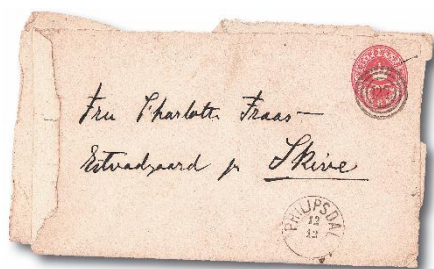 Fru Charlotte Fraas
Estvadgaard pr Skive
PHILIPSDAL
12
12